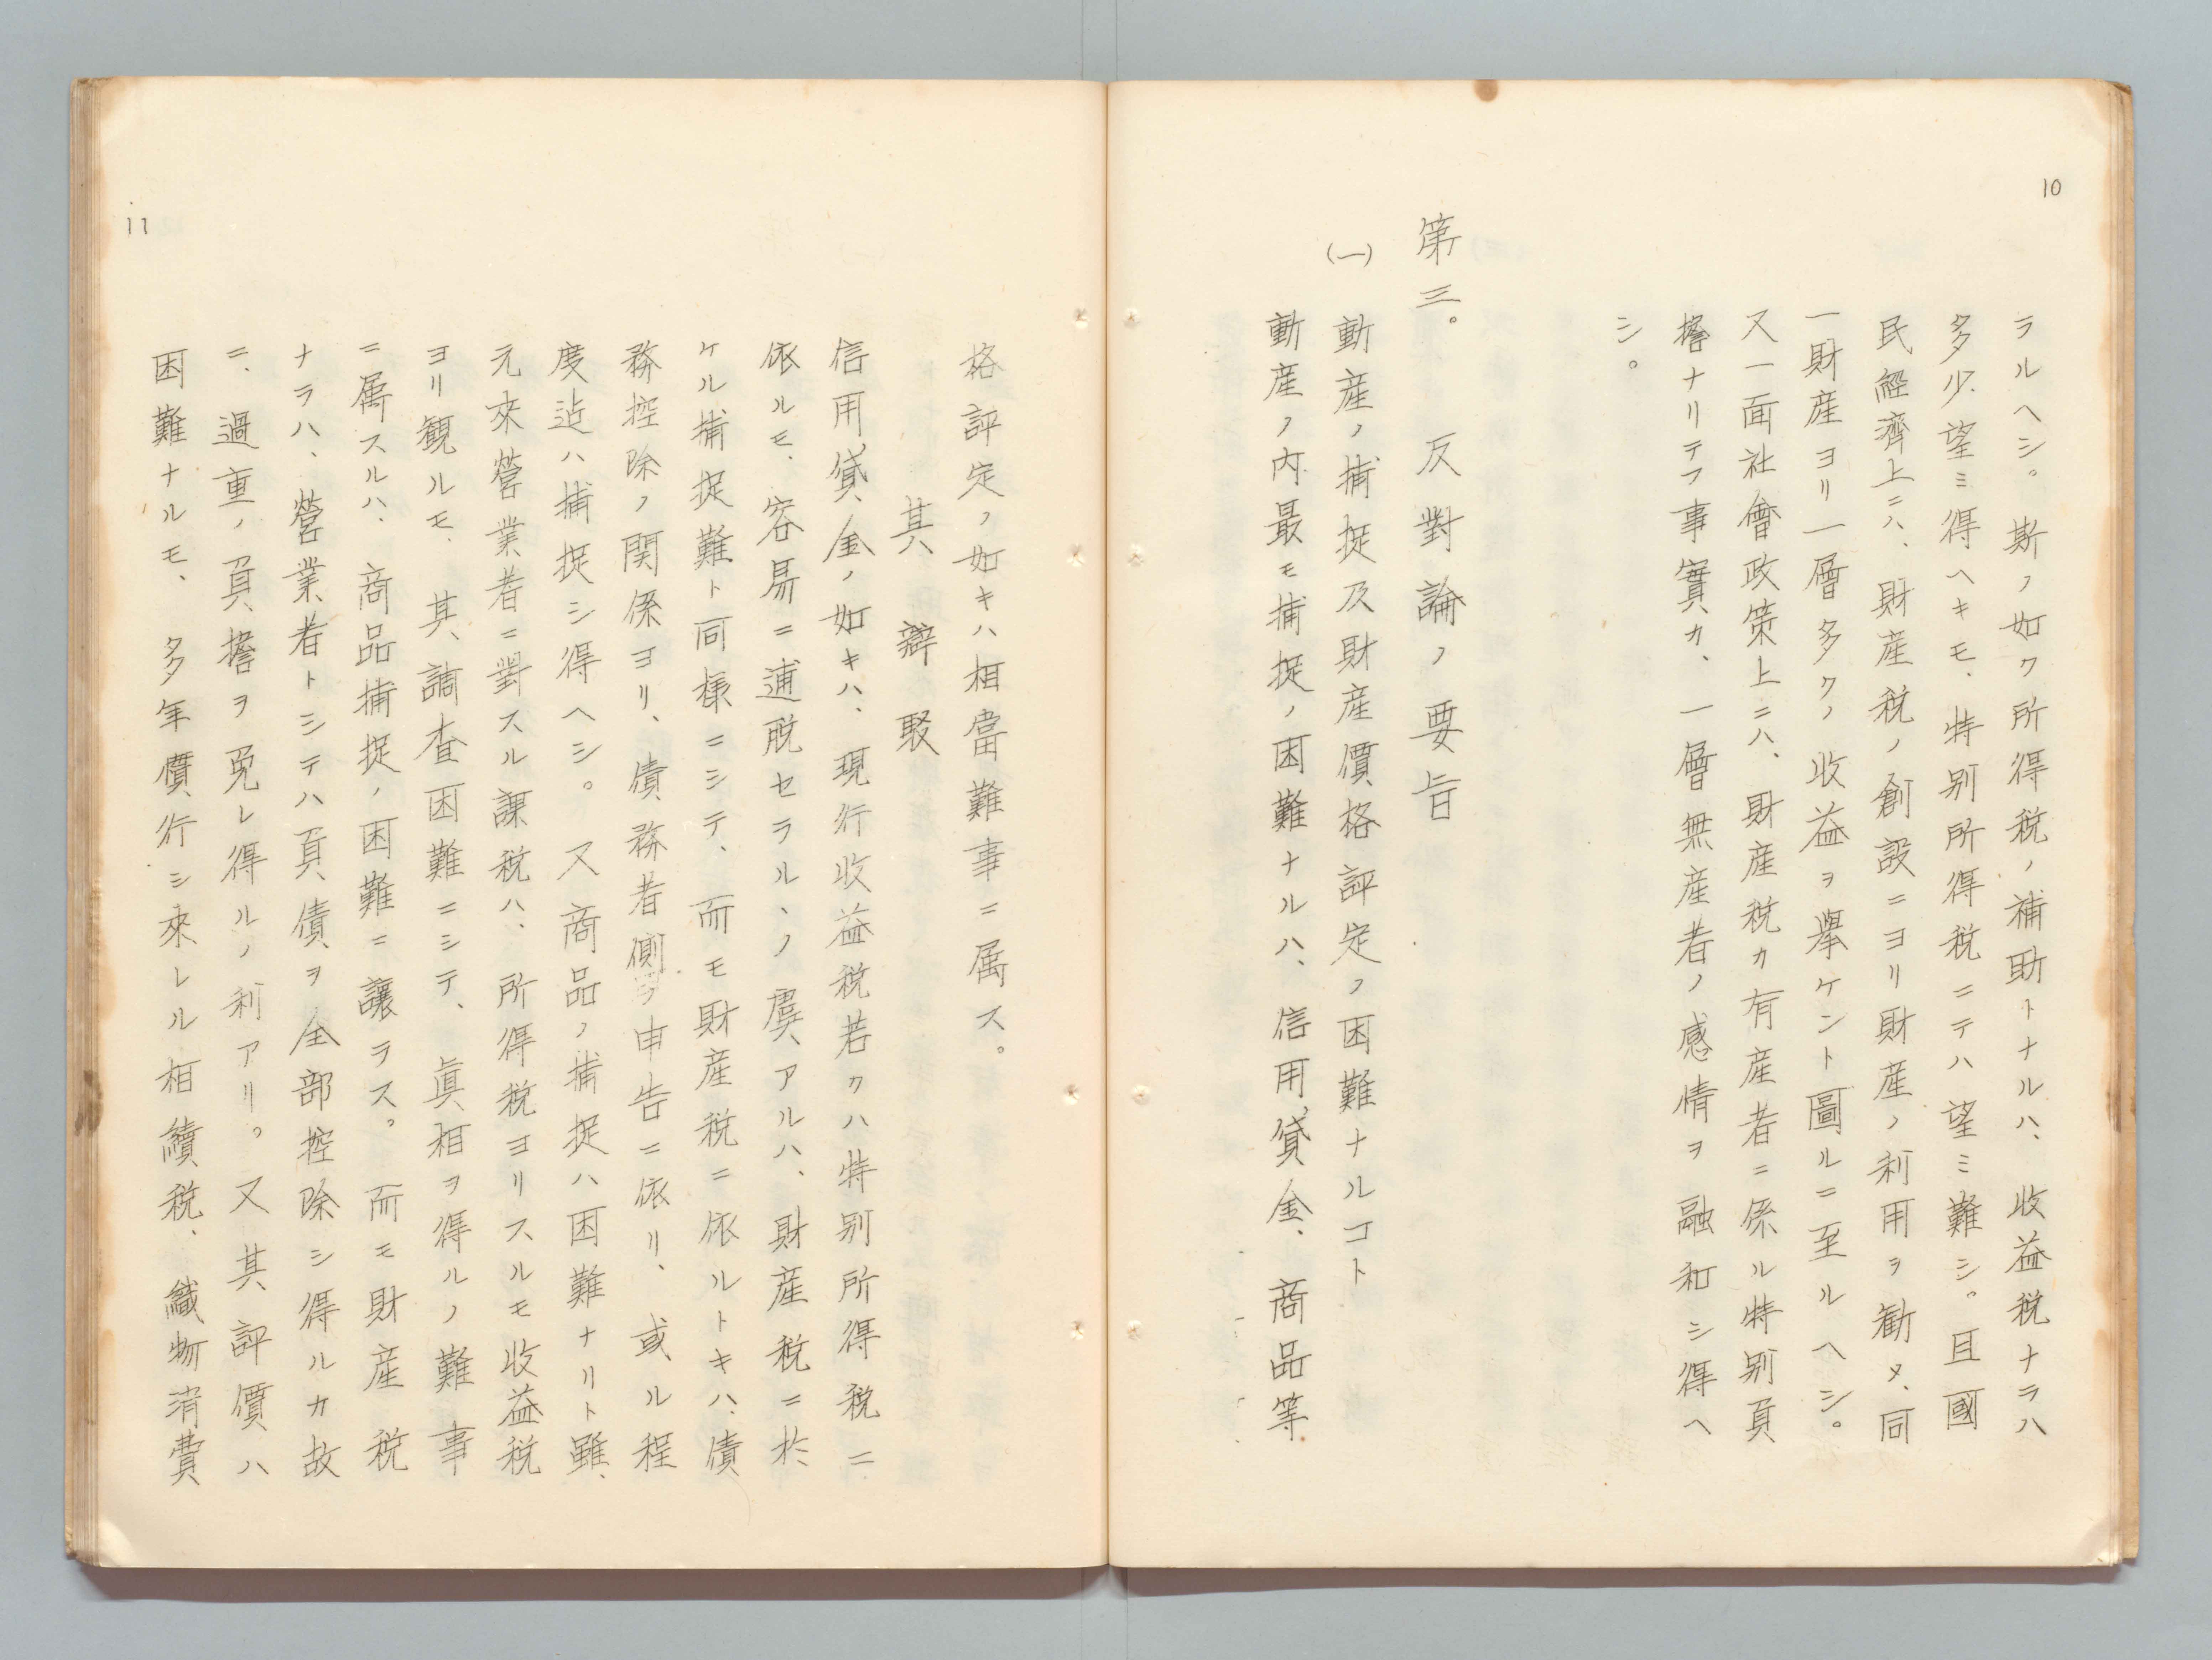 10
ラルヘシ。斯ノ如ク所得税ノ補助トナルハ、收益税ナラハ
多少望ミ得ヘキモ、特別所得税ニテハ望ミ難シ。且國
民經濟上ニハ、財産税ノ創設ニヨリ財産ノ利用ヲ勧メ、同
一財産ヨリ一層多クノ收益ヲ擧ケント圖ルニ至ルヘシ。
又一面社會政策上ニハ、財産税カ有産者ニ係ル特別負
擔ナリテフ事實カ、一層無産者ノ感情ヲ融和シ得ヘ
シ。
第三。 反對論ノ要旨
(一) 動産ノ捕捉及財産價格評定ノ困難ナルコト
動産ノ内最モ捕捉ノ困難ナルハ、信用貸金、商品等
格評定ノ如キハ相當難事ニ属ス。
其辯駁
信用貸金ノ如キハ、現行收益税若クハ特別所得税ニ
依ルモ、容易ニ逋脱セラルヽノ虞アルハ、財産税ニ於
ケル捕捉難ト同様ニシテ、而モ財産税ニ依ルトキハ、債
務控除ノ関係ヨリ、債務者側ヲ申告ニ依リ、或ル程
度迠ハ捕捉シ得ヘシ。又商品ノ捕捉ハ困難ナリト雖、
元來營業者ニ對スル課税ハ、所得税ヨリスルモ收益税
ヨリ観ルモ、其調査困難ニシテ、眞相ヲ得ルノ難事
ニ属スルハ、商品捕捉ノ困難ニ讓ラス。而モ財産税
ナラハ、營業者トシテハ負債ヲ全部控除シ得ルカ故
ニ、過重ノ負擔ヲ免レ得ルノ利アリ。又其評價ハ
困難ナルモ、多年慣行シ來レル相續税、織物消費
11